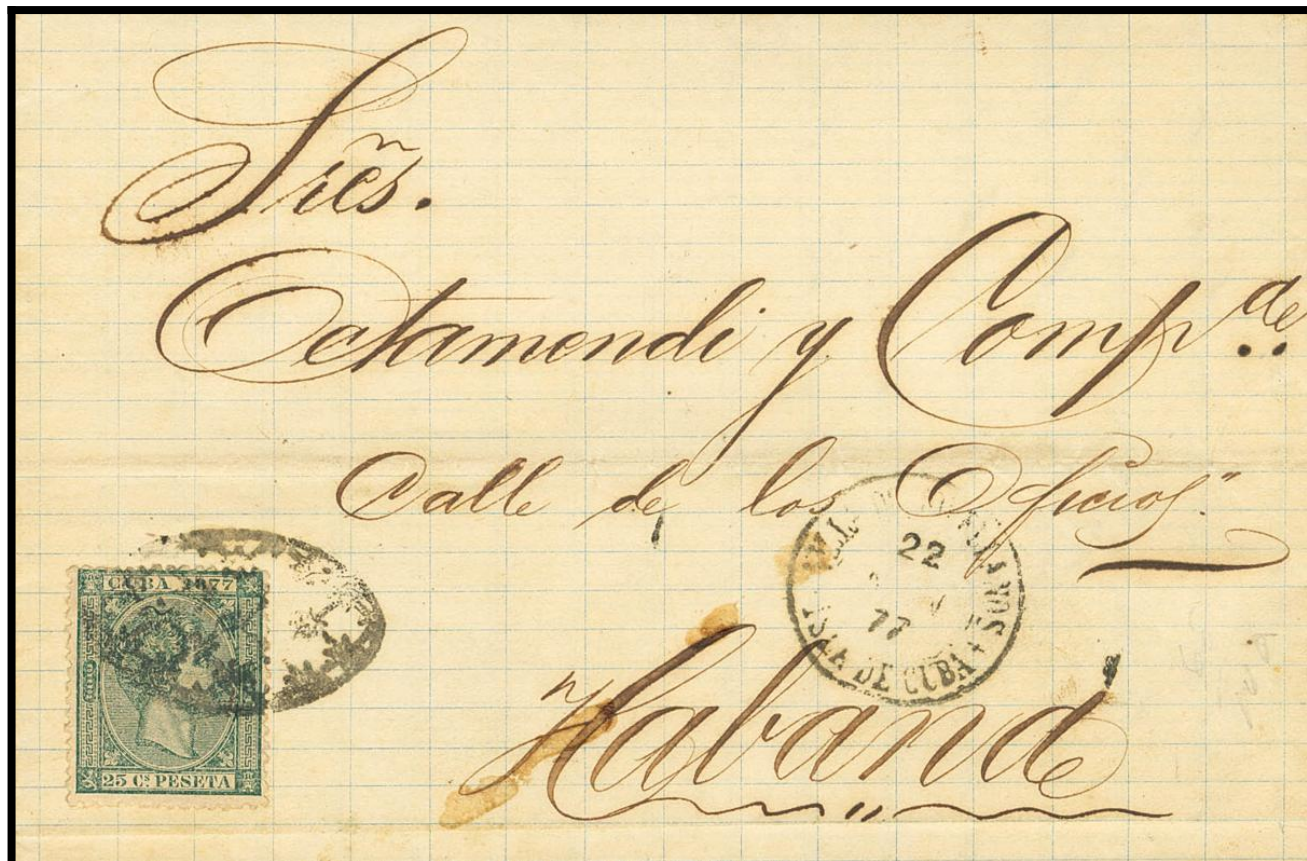 Sres.
Octamendi y Compª
Calle de los Oficios
Habana
22
77
ISLA DE CUBA
CUBA 1877
25 Cs. PESETA